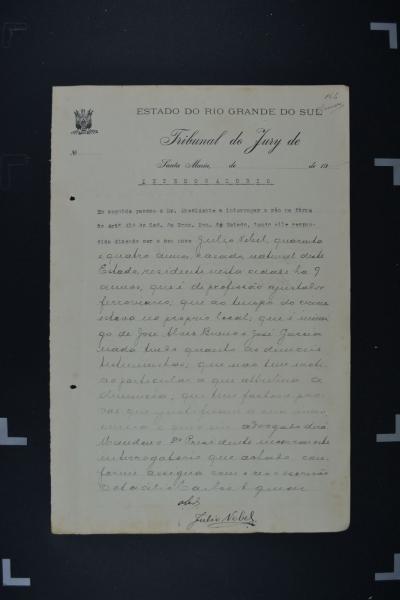 ESTADO DO RIO GRANDE DO SUL
Tribunal do Jury de
Nº
Santa Maria, de de 19
INTERROGATORIO
Em seguida passou o Dr. Presidente a interrogar o réo na fórma
do artº do Cod. do Proc. Pen. do Estado, tendo elle respon-
dido dizendo ser o seu nome Julio Nebel, quarenta
e quatro annos, casado, natural deste
Estado, residente nesta cidade ha 9
annos, que é de profissão ajustador
ferroviario; que ao tempo do crime
estava no proprio local; que é inimi-
go de José Alves Bueno e José Garcia
nada tendo quanto as demais
testemunhas; que não tem motivo
particular a que attribua a
denuncia; que tem factos e pro-
vas que justificam a sua inno-
cencia e que seu advogado dirá
Mandou o Dr. Presidente encerrar este
interrogatorio que achado con-
forme assigna com o réo
Julio Nebel